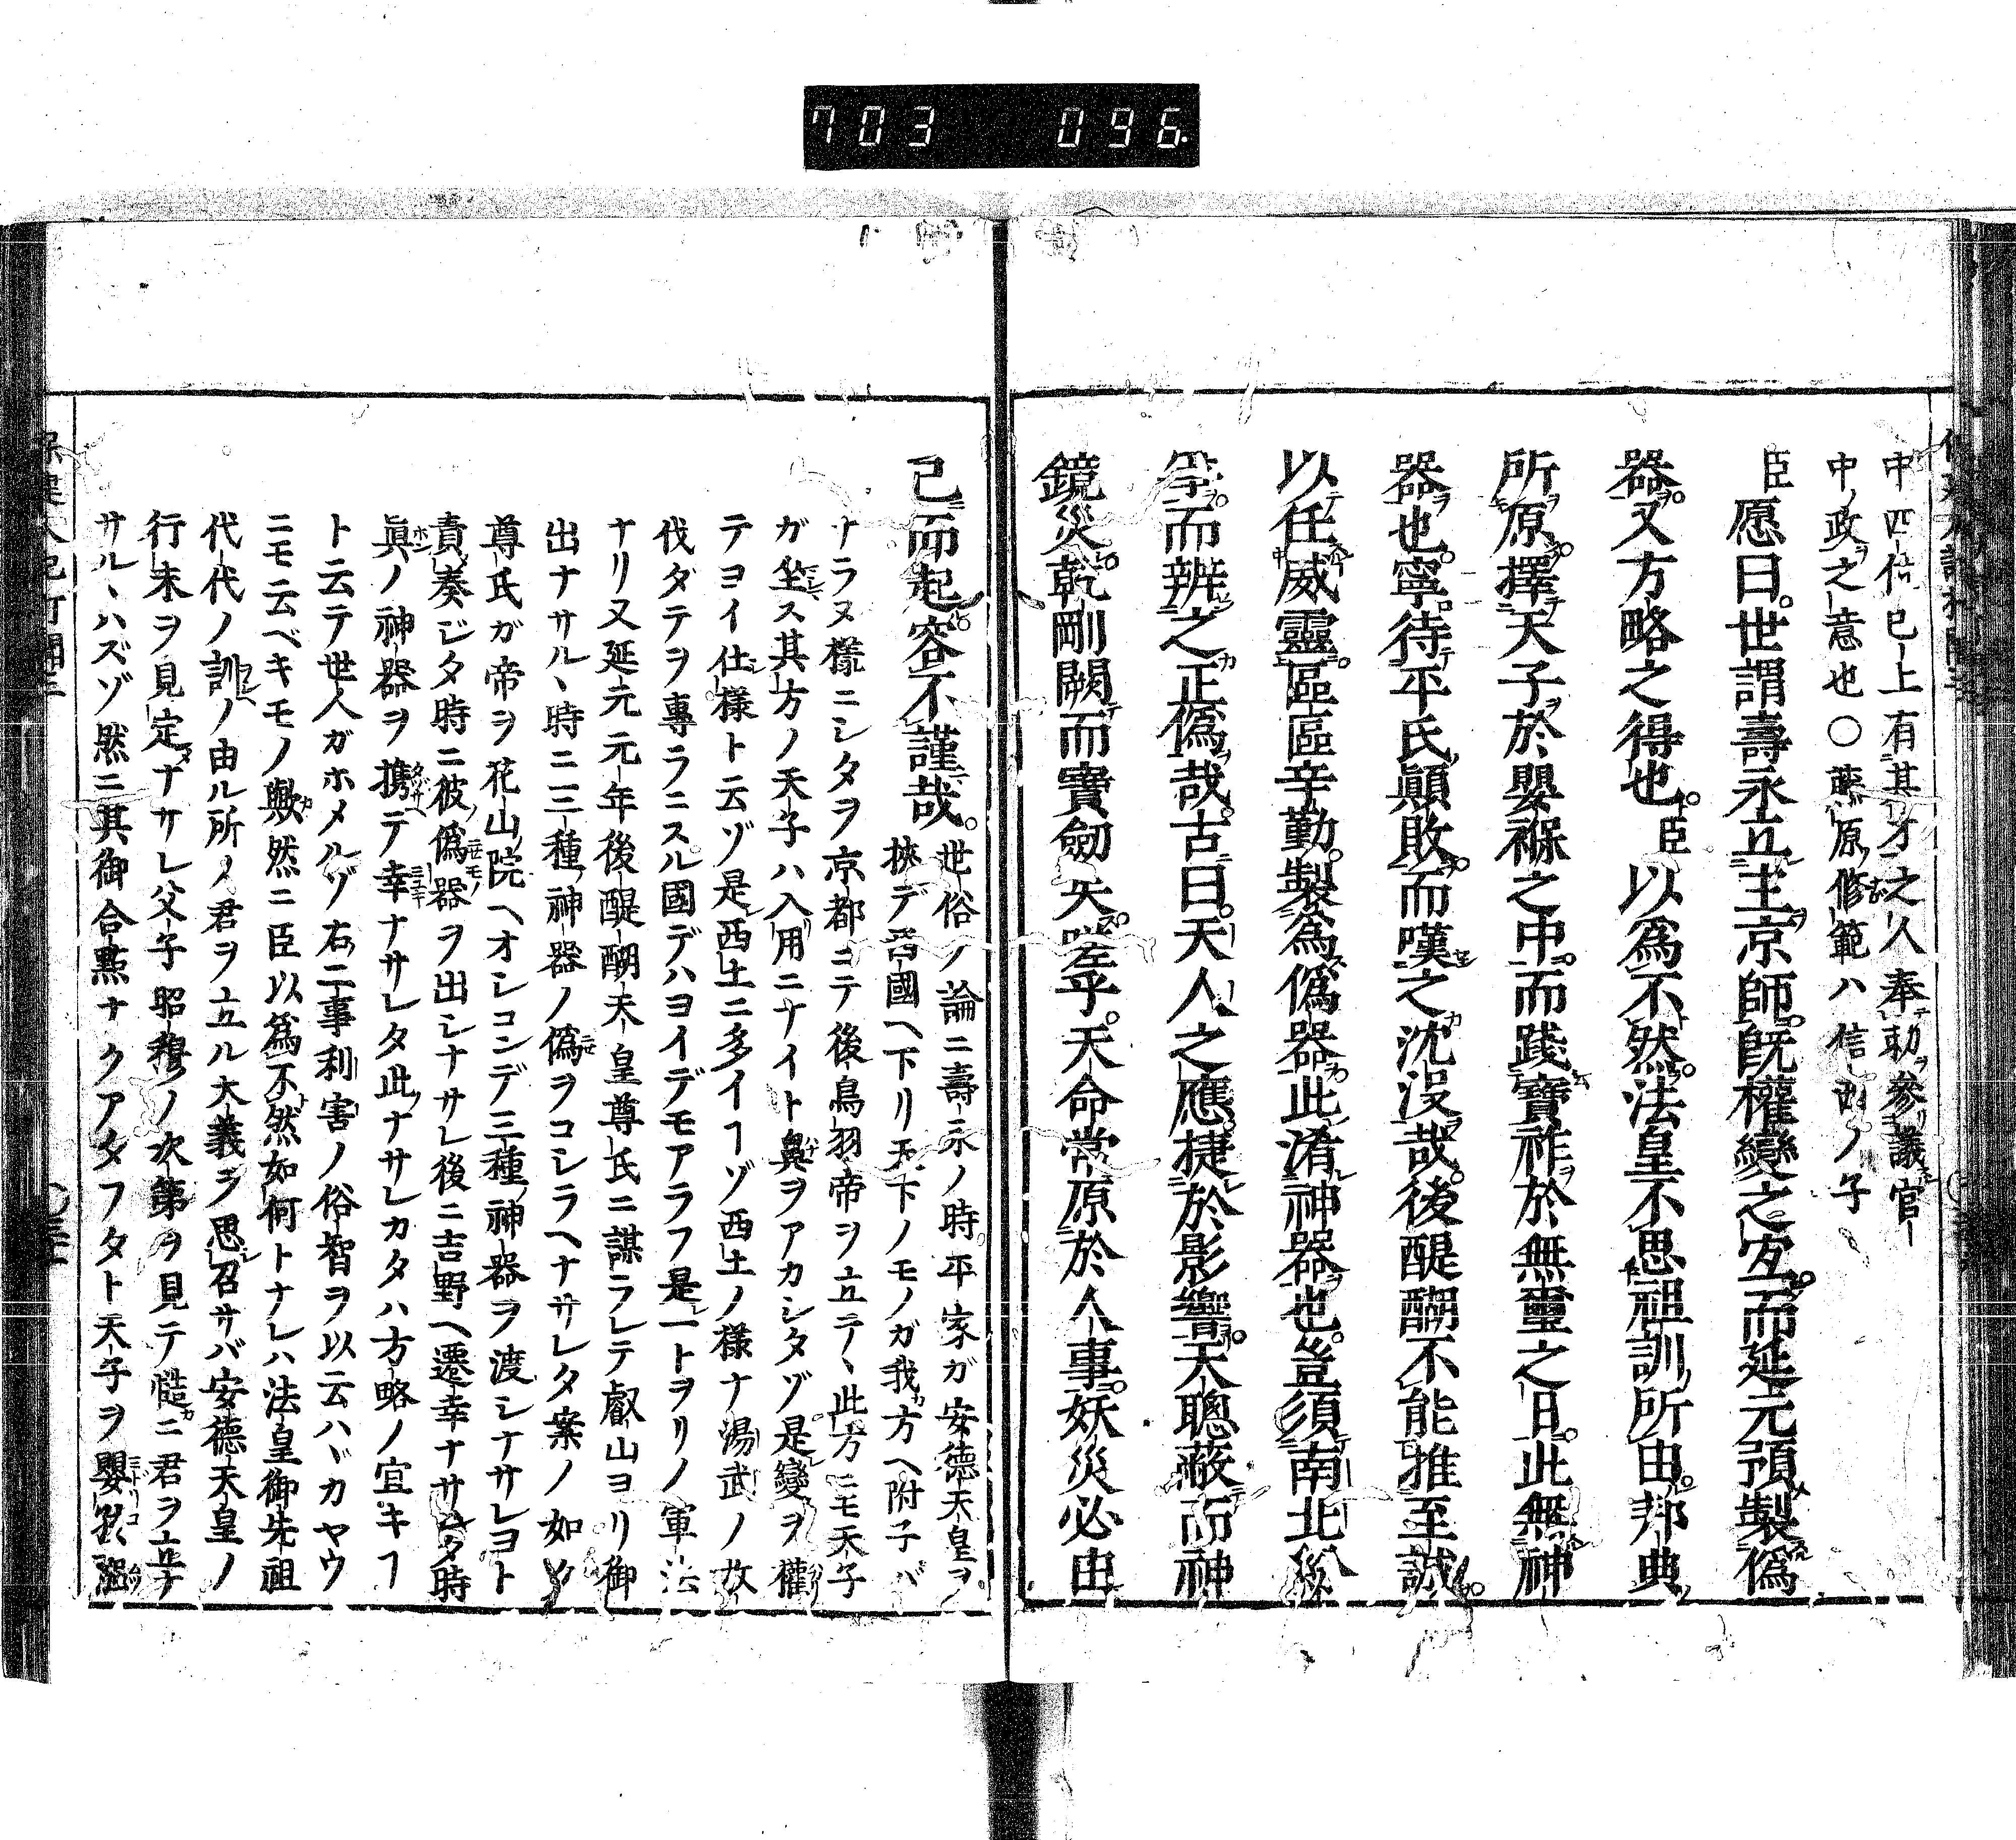 703 096
中四位已上有其才之人奉勅參議官
中ノ政ヲ之意也〇藤原ノ修範ハ信西ノ子
臣愿曰世謂壽永立主京師既權變之宜而延元預製僞
器又方略之得也臣以爲不然法皇不思祖訓所由邦典
所原擇天子於嬰褓之中而踐寶祚於無璽之日此無神
器也寧待平氏顚敗而嘆之沈没哉後醍醐不能推至誠
以任威靈區區辛勤製爲僞器此淆神器也豈須南北
而辨之正僞哉古曰天人之應捷於影響天聰蔽而神
鏡災乾剛闕而寶劔失嗟乎天命常原於人事妖災必由
己而起容不謹哉
世俗ノ論ニ壽永ノ時平家ガ安德天皇ヲ
挾テ西國ヘ下リ天下ノモノガ我方ヘ附子バ
ナラヌ樣ニシタヲ京都ニテ後鳥羽帝ヲ立テヽ此方ニモ天子
ガ坐ス其方ノ天子ハ入用ニナイト鼻ヲアカシタゾ是變ヲ權
テヨイ仕樣ト云ゾ是西土ニ多イヿゾ西土ノ樣ナ湯武ノ放
伐ダテヲ專ラニスル國デハヨイデモアラフ是一トヲリノ軍法
ナリ又延元元年後醍醐天皇尊氏ニ謀ラレテ叡山ヨリ御
出ナサルヽ時ニ三種神器ノ僞ヲコシラヘナサレタ案ノ如ク
尊氏ガ帝ヲ花山院ヘオシコンデ三種神器ヲ渡シナサレヨト
責奏ジタ時ニ彼僞器ヲ出シナサレ後ニ吉野ヘ遷幸ナサルタ時
眞ノ神器ヲ携テ幸ナサレタ此ナサレカタハ方略ノ宜キヿ
ト云テ世人ガホメルゾ右二事利害ノ俗智ヲ以云ハヾカヤウ
ニモ云ベキモノ歟然ニ臣以爲不然如何トナレハ法皇御先祖
代代ノ訓ノ由ル所ノ君ヲ立ル大義ヲ思召サバ安德天皇ノ
行末ヲ見定ナサレ父子昭穆ノ次第ヲ見テ慥ニ君ヲ立ナ
サルヽハズゾ然ニ其御合點ナクアタフタト天子ヲ嬰孩